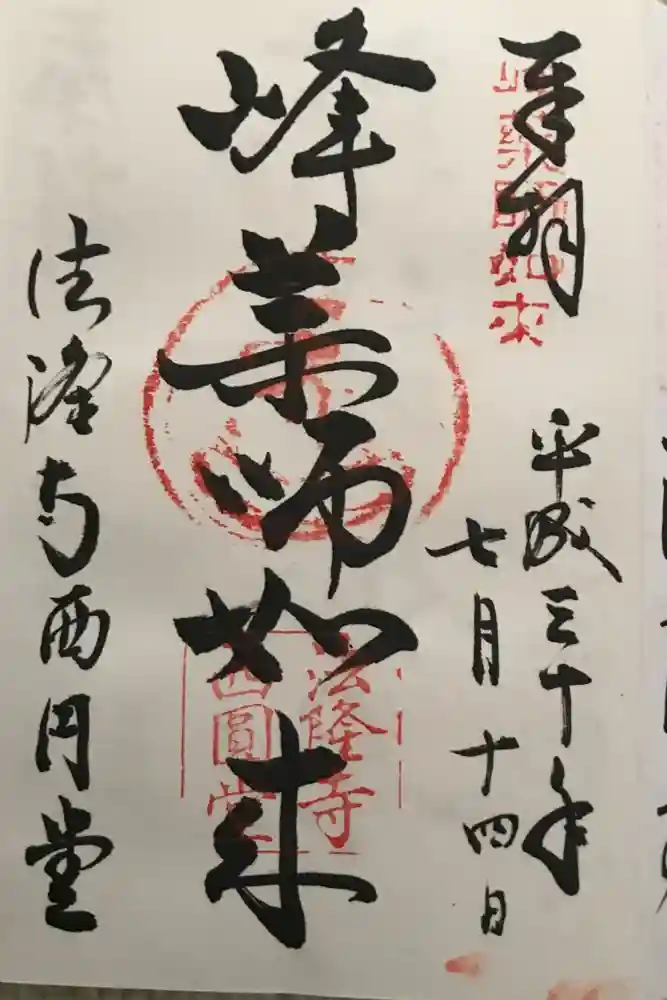 奉拝
平成三十年
七月十四日
峰薬師如来
法隆寺西円堂
峯薬師如來
法隆寺
西圓堂